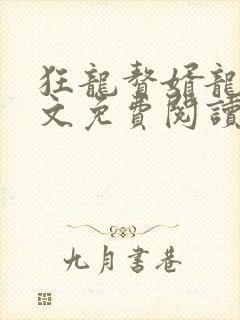 狂龍贅婿龍
文免費閱讀
九月書巷